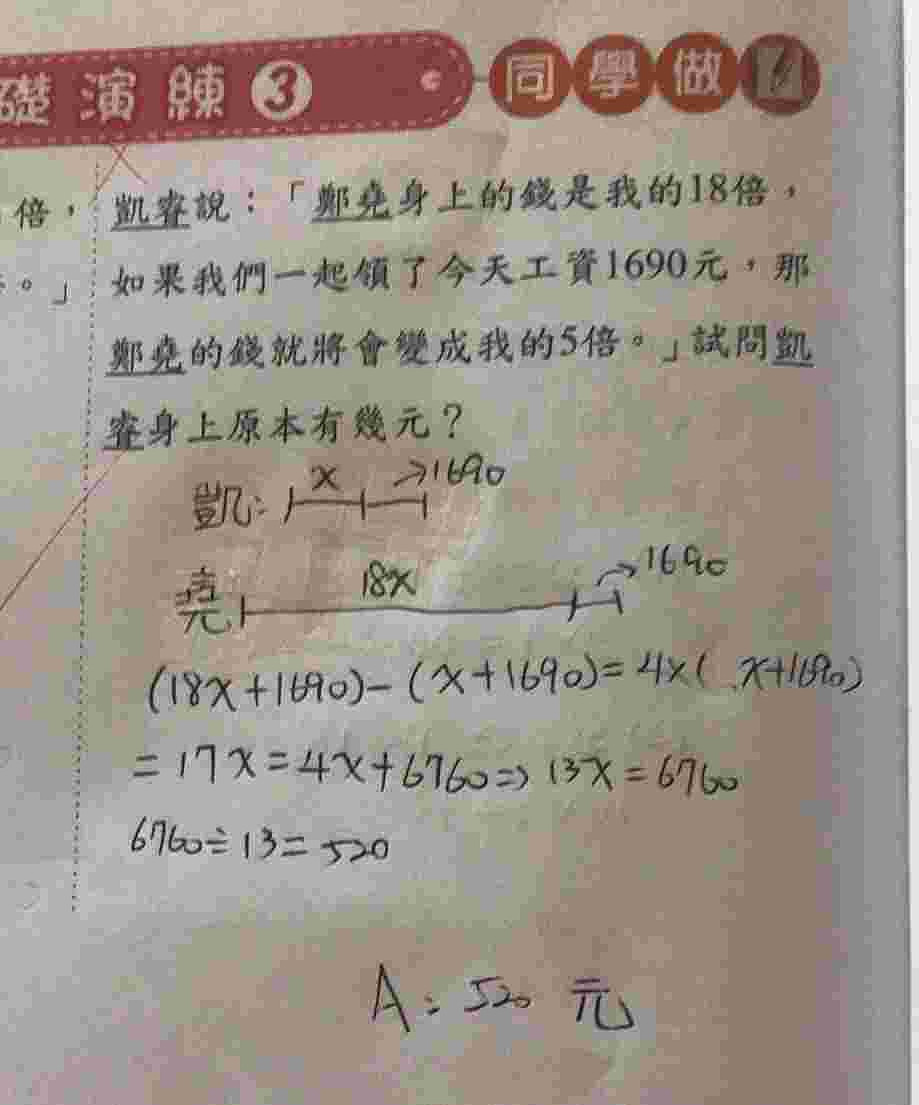 礎演練3 同學做
倍，
。」
凱睿說：「鄭堯身上的錢是我的18倍，
如果我們一起領了今天工資1690元，那
鄭堯的錢就將會變成我的5倍。」試問凱
睿身上原本有幾元？
x 1690
凱:
18x 1690
堯
(18x+1690)-(x+1690)=4×( x+1690)
=17x=4x+6760⇒13x=6760
6760÷13=520
A：520 元